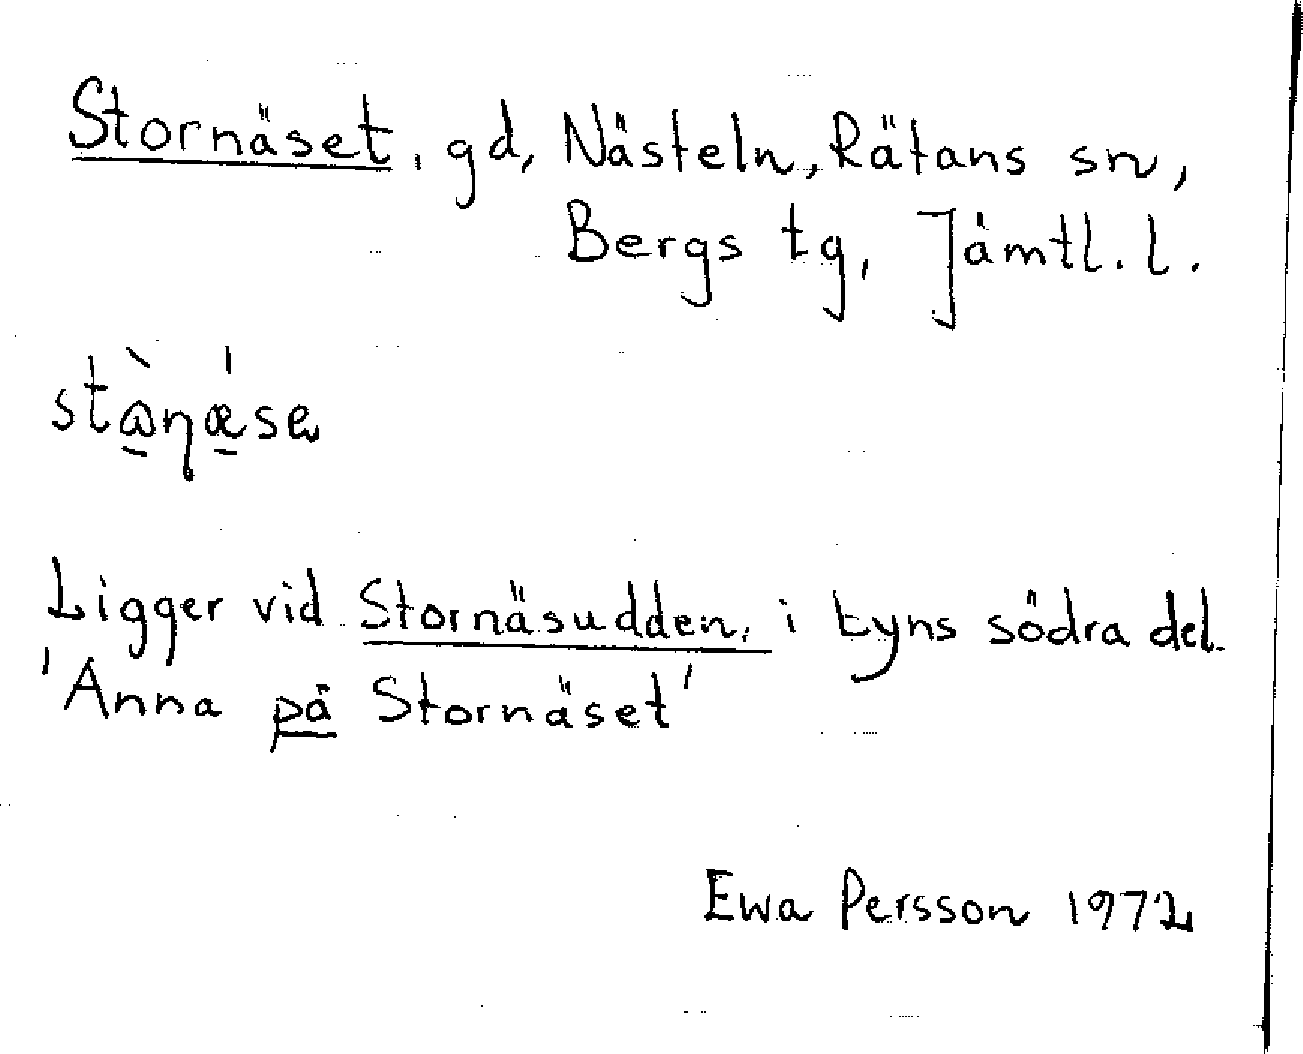 Stornäset, gd, Nästeln, Rätans sn,
Bergs tg, Jämtl. l.
Ligger vid Stornäsudden, i byns södra del.
'Anna på Stornäset'
Ewa Persson 1972